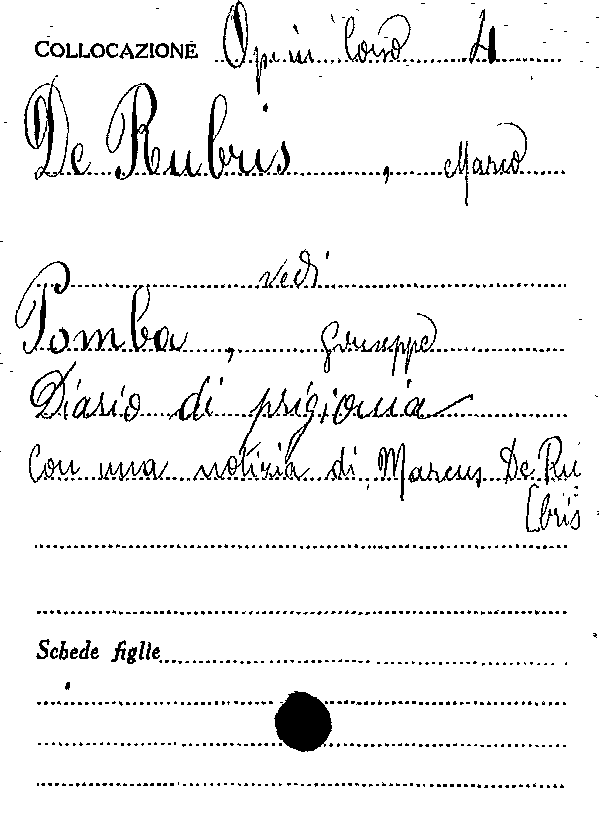 COLLOCAZIONE Op. in Corso 4
De Rubris, Marco
vedi
Pomba, Giuseppe
Diario di prigionia
Con una notizia di Marcus De Ru
[bris
Schede figlie